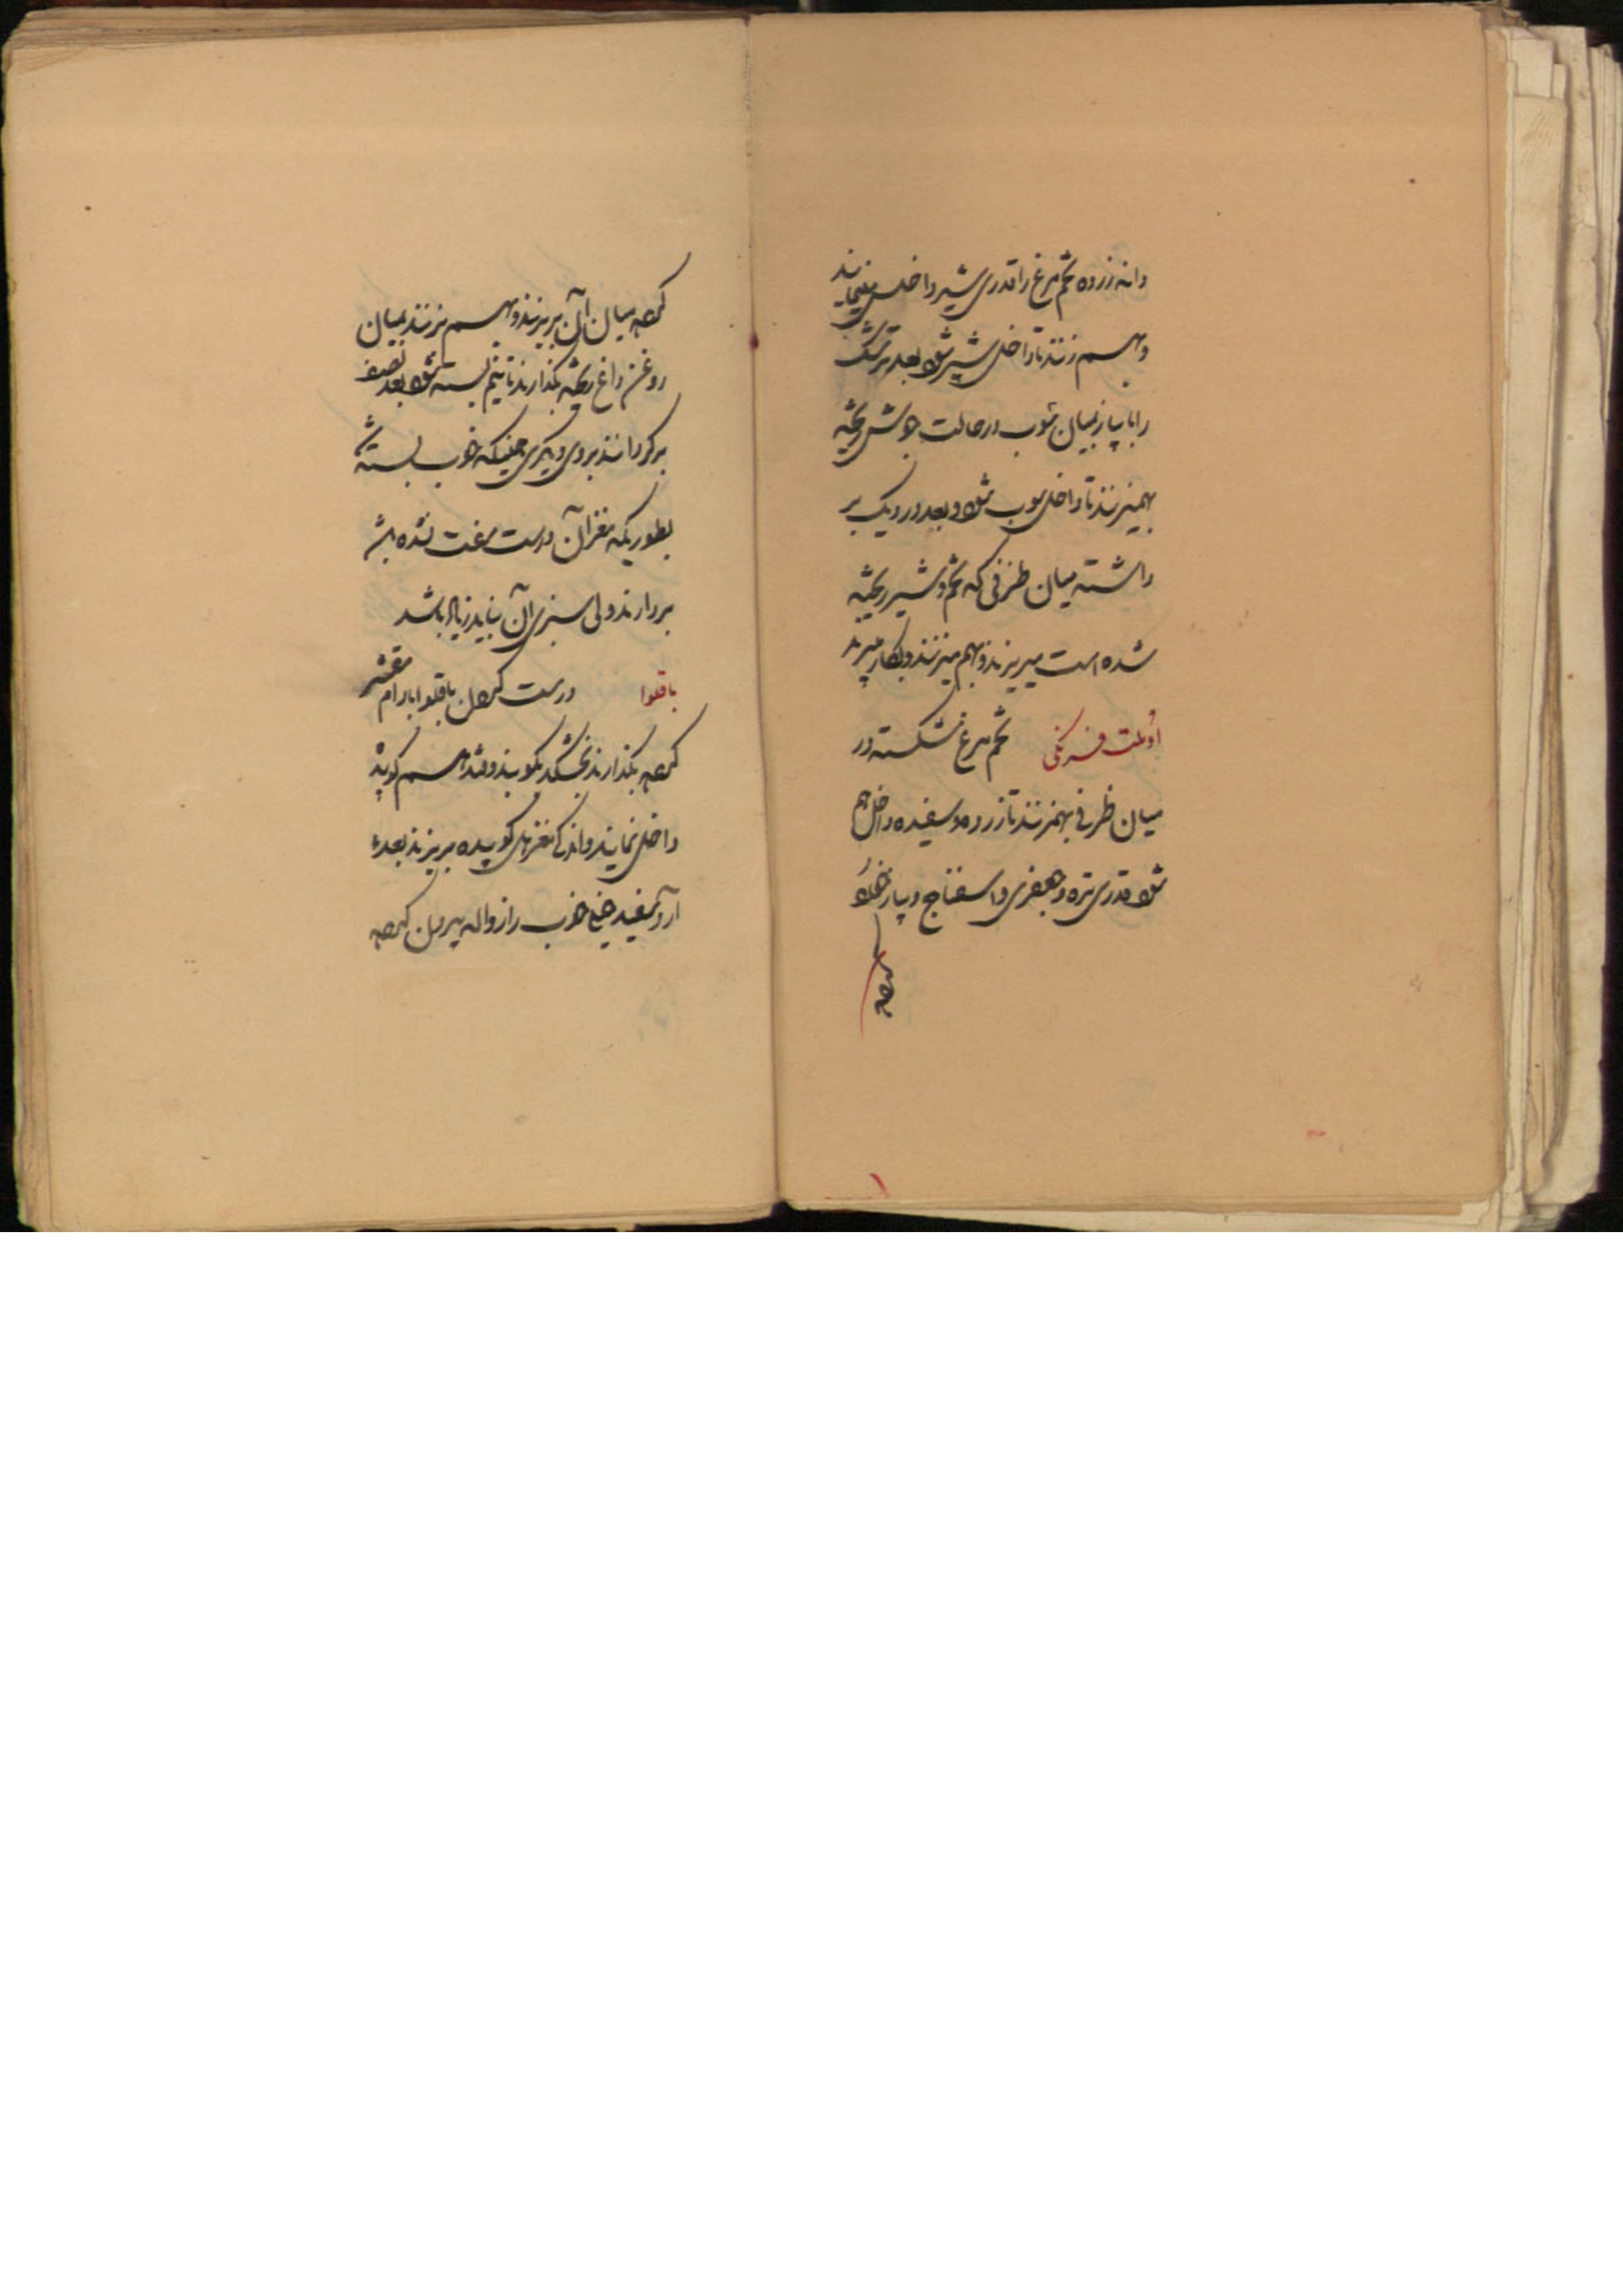 دانه زرده تخم مرغ را قدری شیر داخل مینمایند
و بهم زنند تا داخل شیر شود بعد ترشک
را با پیاز بمیان شوب در حالت جوش ریخته
بهمیزنند تا داخل شوب شود و بعد در دیک بر
داشته میان ظرفی که تخم و شیر ریخته
شده است میریزند و بهم میزنند و بکار میبرند
اوُملت فرنکی تخم مرغ شکسته در
میان ظرفی بهمزنند تا زرده و سفیده داخل هم
شود قدری تره و جعفری و اسفناج و پیاز خلال
کرده
کرده میان آن بریزند و بهم بزنند بمیان
روغن داغ ریخته بگذارند تا نیم بسته شود بعد نصف
برگردانند بروی دیگری همینکه خوب بسته شد
بطوریکه مغز آن درست سفت نشده باشد
بردارند ولی سبزی آن نباید زیاد باشد
باقلوا درست کردن باقلوا بادام مقشر
کرده بگذارند بخشکد بکوبند و قند هم کوبیده
داخل نمایند و اندک مغز هل کوبیده بریزند بعد
آرد سفید خیلی خوب را از واله بیرون کرده